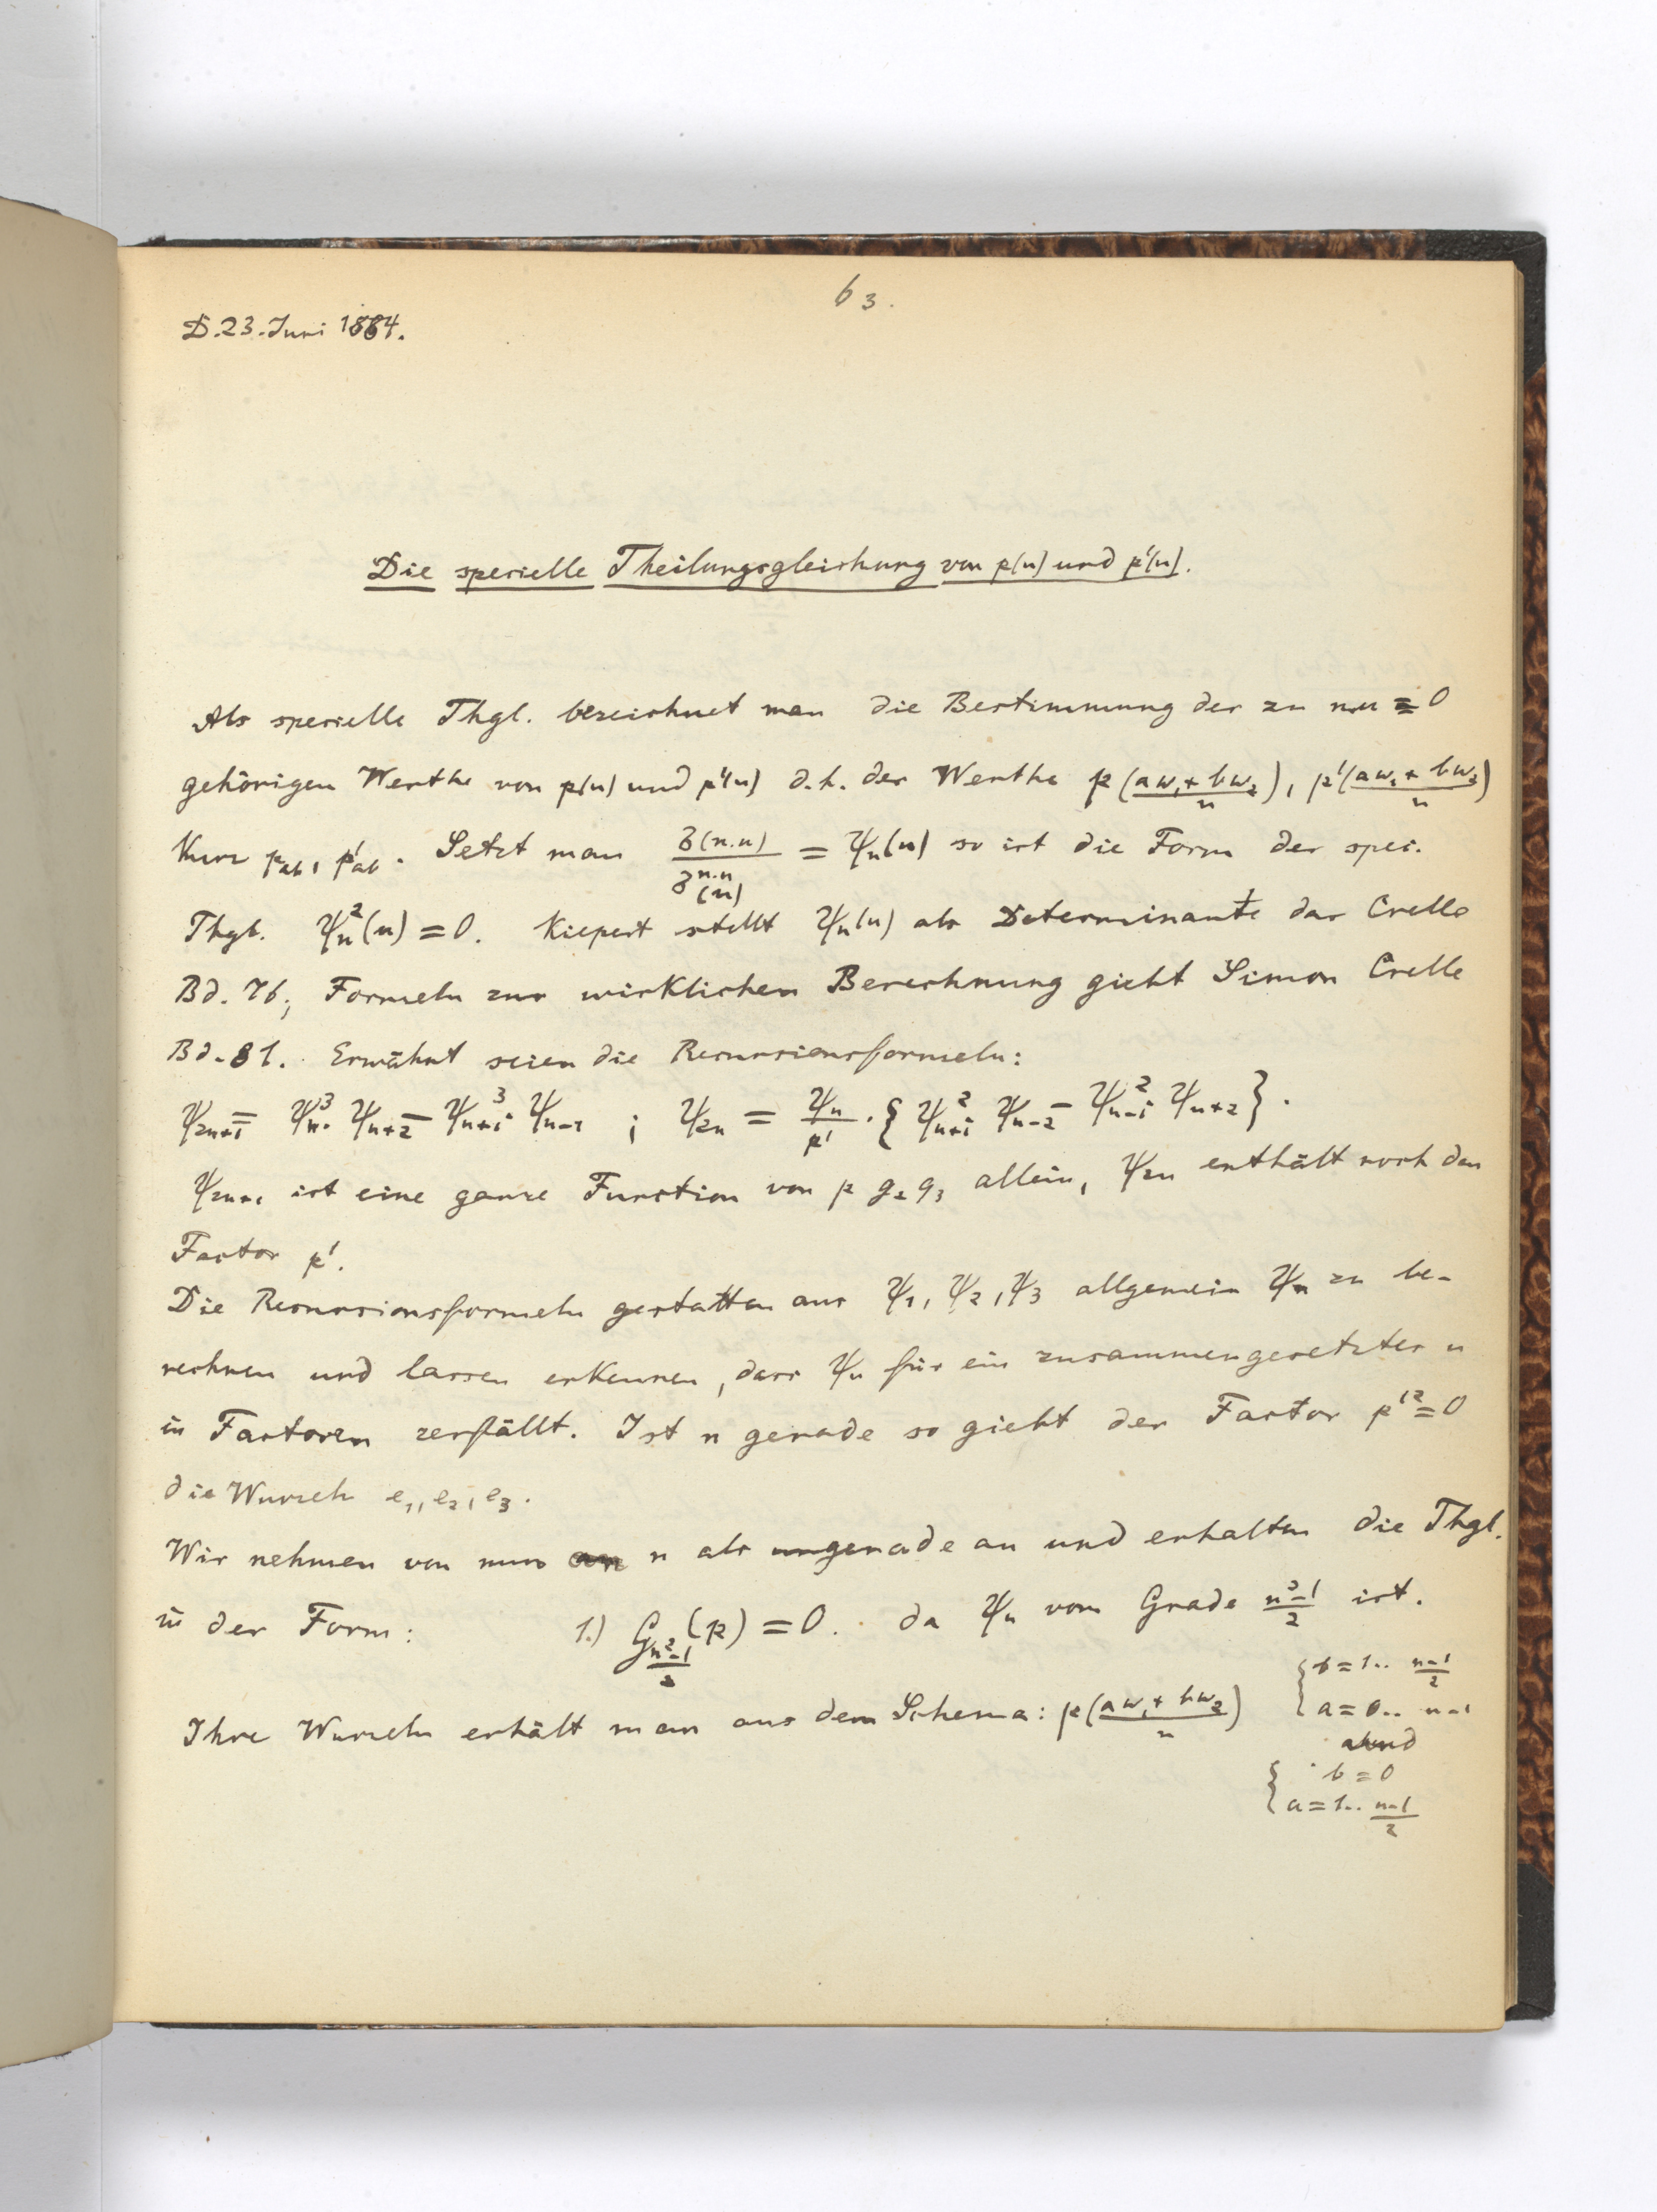 63.
D. 23. Juni 1884.
Die specielle Theilungsgleichung von p(u) und p'(u).
Als specielle Thgl. bezeichnet man die Bestimmung der zu n.u ≡ 0
gehörigen Werthe von p(u) und p'(u) d.h. der Werthe p((aω₁+bω₂)/n), p'((aω₁+bω₂)/n)
Kurz p_ab, p'_ab. Setzt man σ(n.u)/σ^{n.n}(u) = ψₙ(u) so ist die Form der spec.
Thgl. ψₙ²(u) = 0. Kiepert stellt ψₙ(u) als Determinante dar Crelle
Bd. 76; Formeln zur wirklichen Berechnung giebt Simon Crelle
Bd. 81. Erwähnt seien die Recursionsformeln:
ψ₂ₙ₊₁ = ψₙ³. ψₙ₊₂ − ψₙ₊₁³ ψₙ₋₁ ; ψ₂ₙ = ψₙ/p' . { ψₙ₊₁² ψₙ₋₂ − ψₙ₋₁² ψₙ₊₂ } .
ψ₂ₙ₊₁ ist eine ganze Function von p g₂ g₃ allein, ψ₂ₙ enthält noch den
Factor p'.
Die Recursionsformeln gestatten aus ψ₁, ψ₂, ψ₃ allgemein ψₙ zu be-
rechnen und lassen erkennen, dass ψₙ für ein zusammengesetztes n
in Factoren zerfällt. Ist n gerade so giebt der Factor p'² = 0
die Wurzeln e₁, e₂, e₃.
Wir nehmen von nun an n als ungerade an und erhalten die Thgl.
in der Form: 1.) G_{(n²-1)/2}(p) = 0. da ψₙ vom Grade (n²-1)/2 ist.
Ihre Wurzeln erhält man aus dem Schema: p((aω₁+bω₂)/n) { b = 1.. (n-1)/2
a = 0.. n-1
und
{ b = 0
a = 1.. (n-1)/2